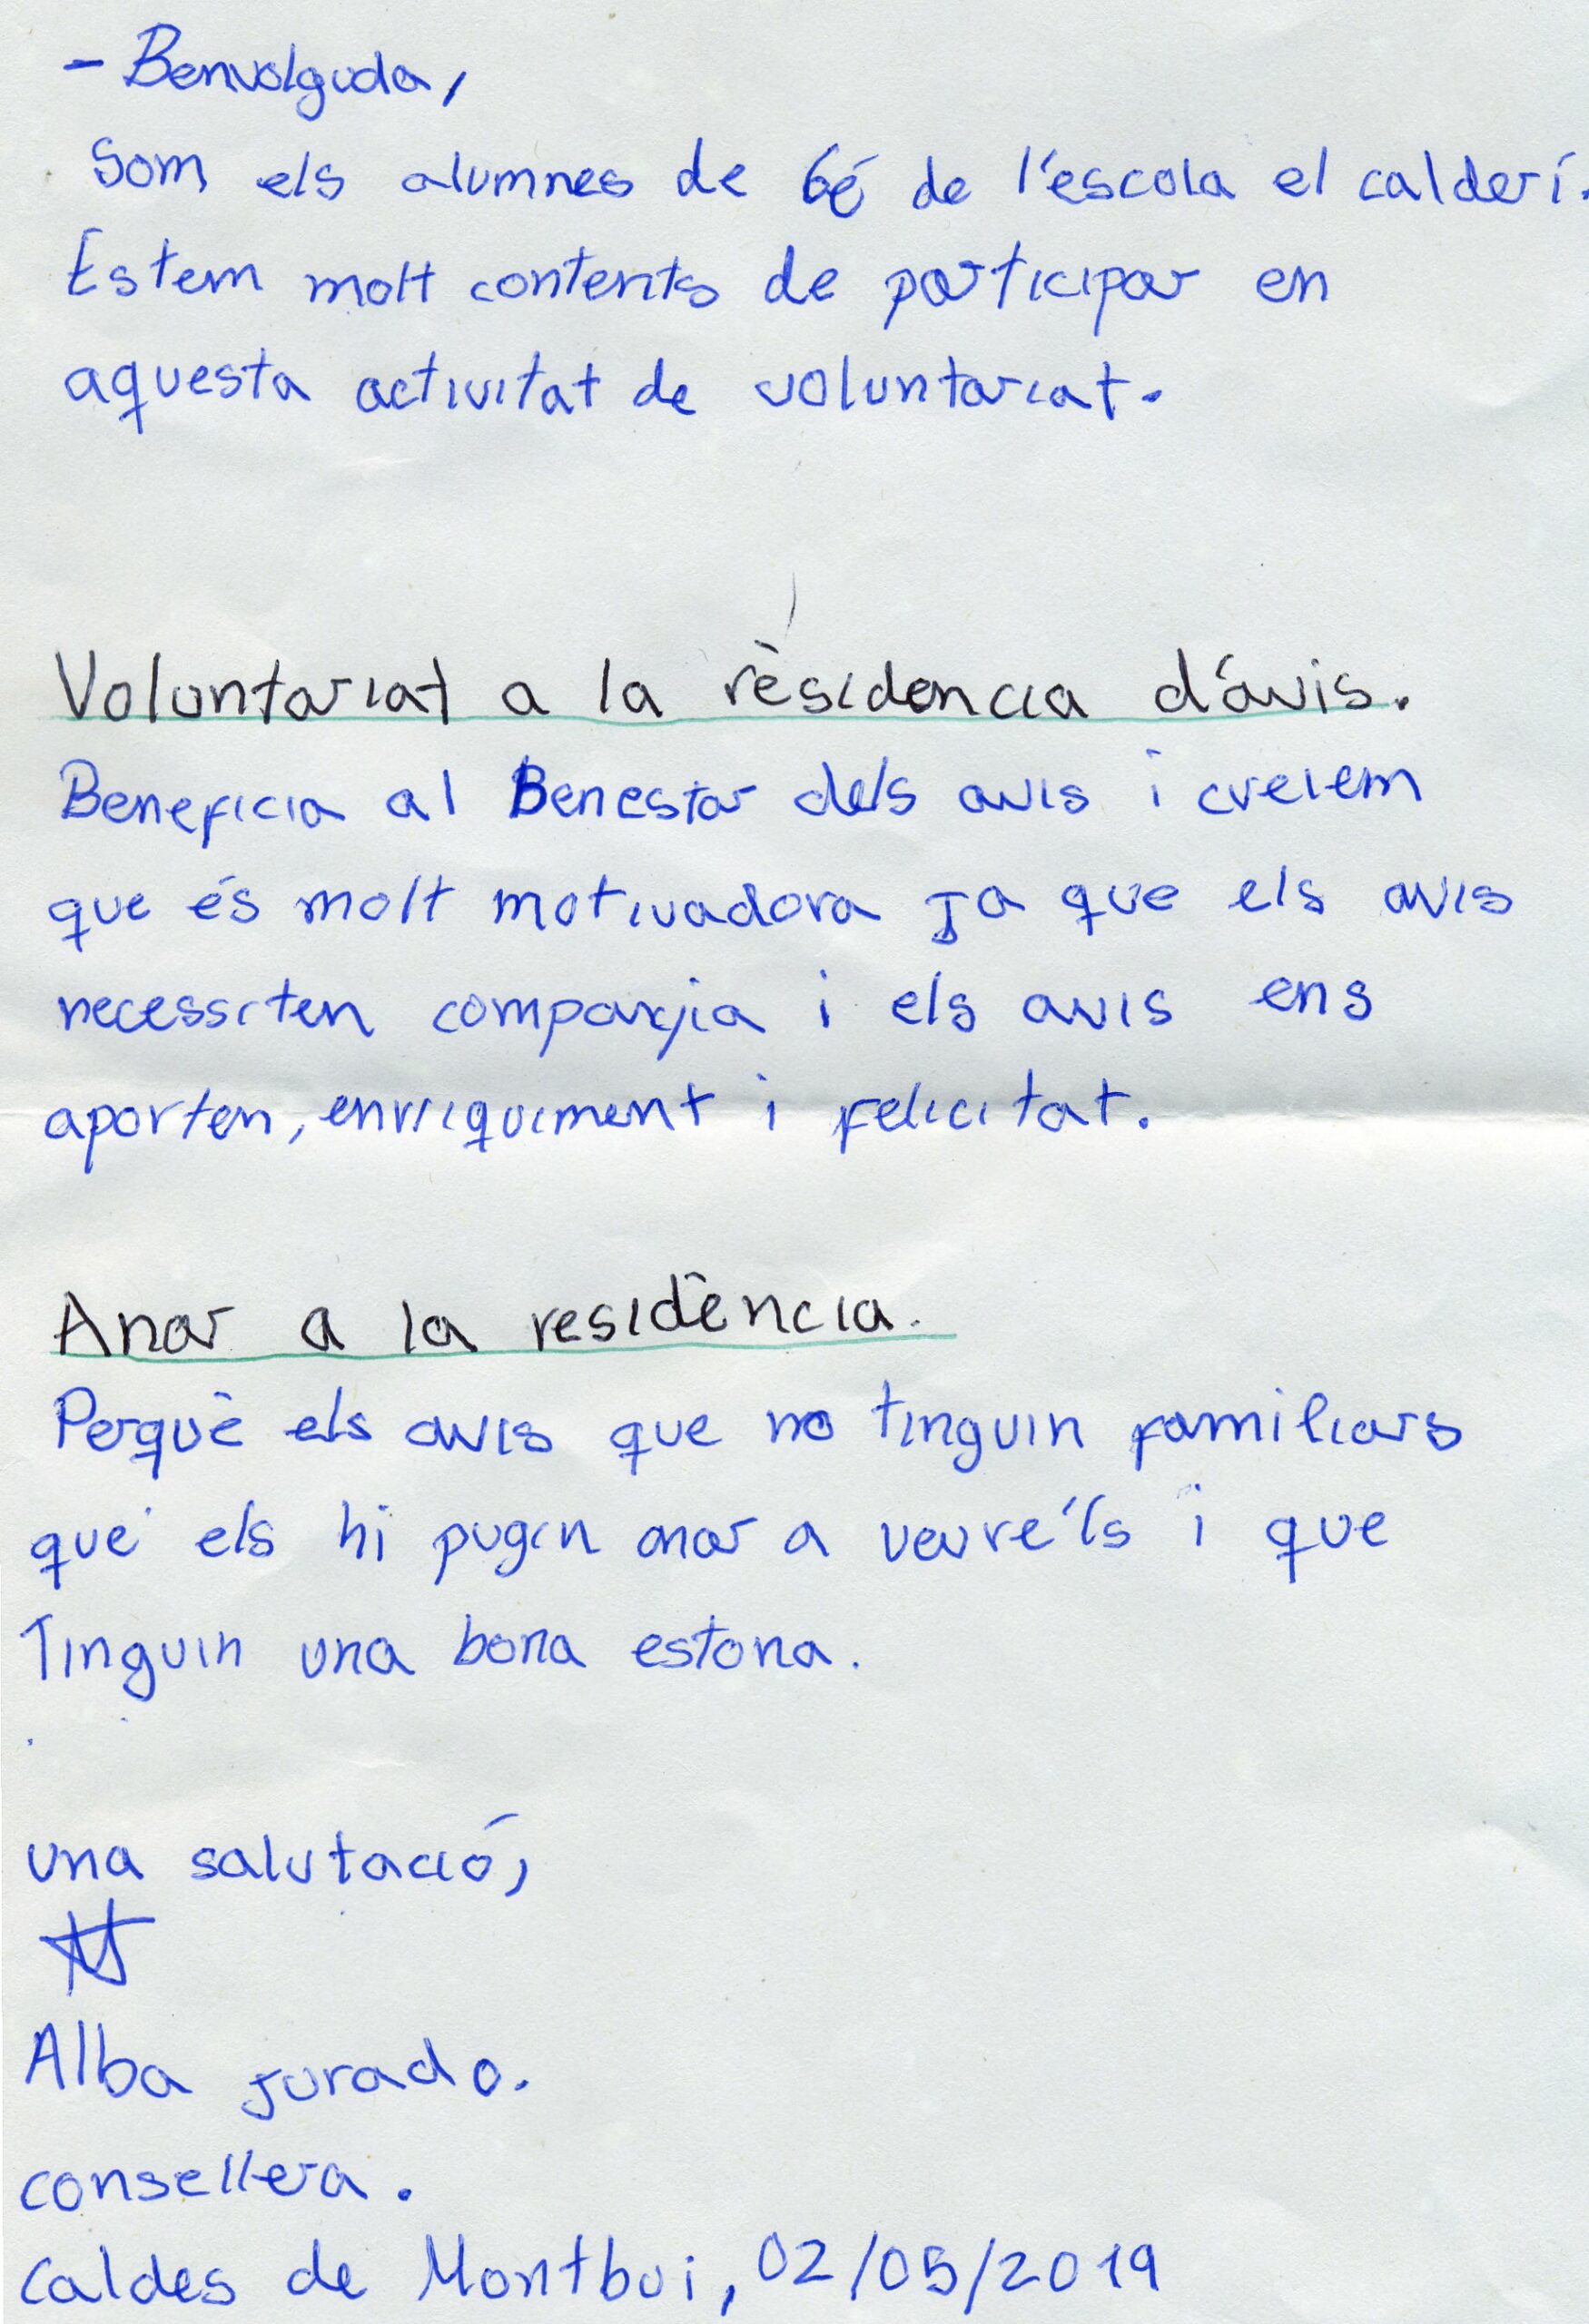 - Benvolguda,
Som els alumnes de 6é de l'escola el calderí.
Estem molt contents de participar en
aquesta activitat de voluntariat.
Voluntariat a la rèsidencia d'avis.
Beneficia al Benestar dels avis i creiem
que és molt motivadora ja que els avis
necessiten companyia i els avis ens
aporten, enriquiment i felicitat.
Anar a la residència.
Perquè els avis que no tinguin familiars
que els hi pugin anar a veure'ls i que
Tinguin una bona estona.
una salutació,
Alba jurado.
consellera.
Caldes de Montbui, 02/05/2019